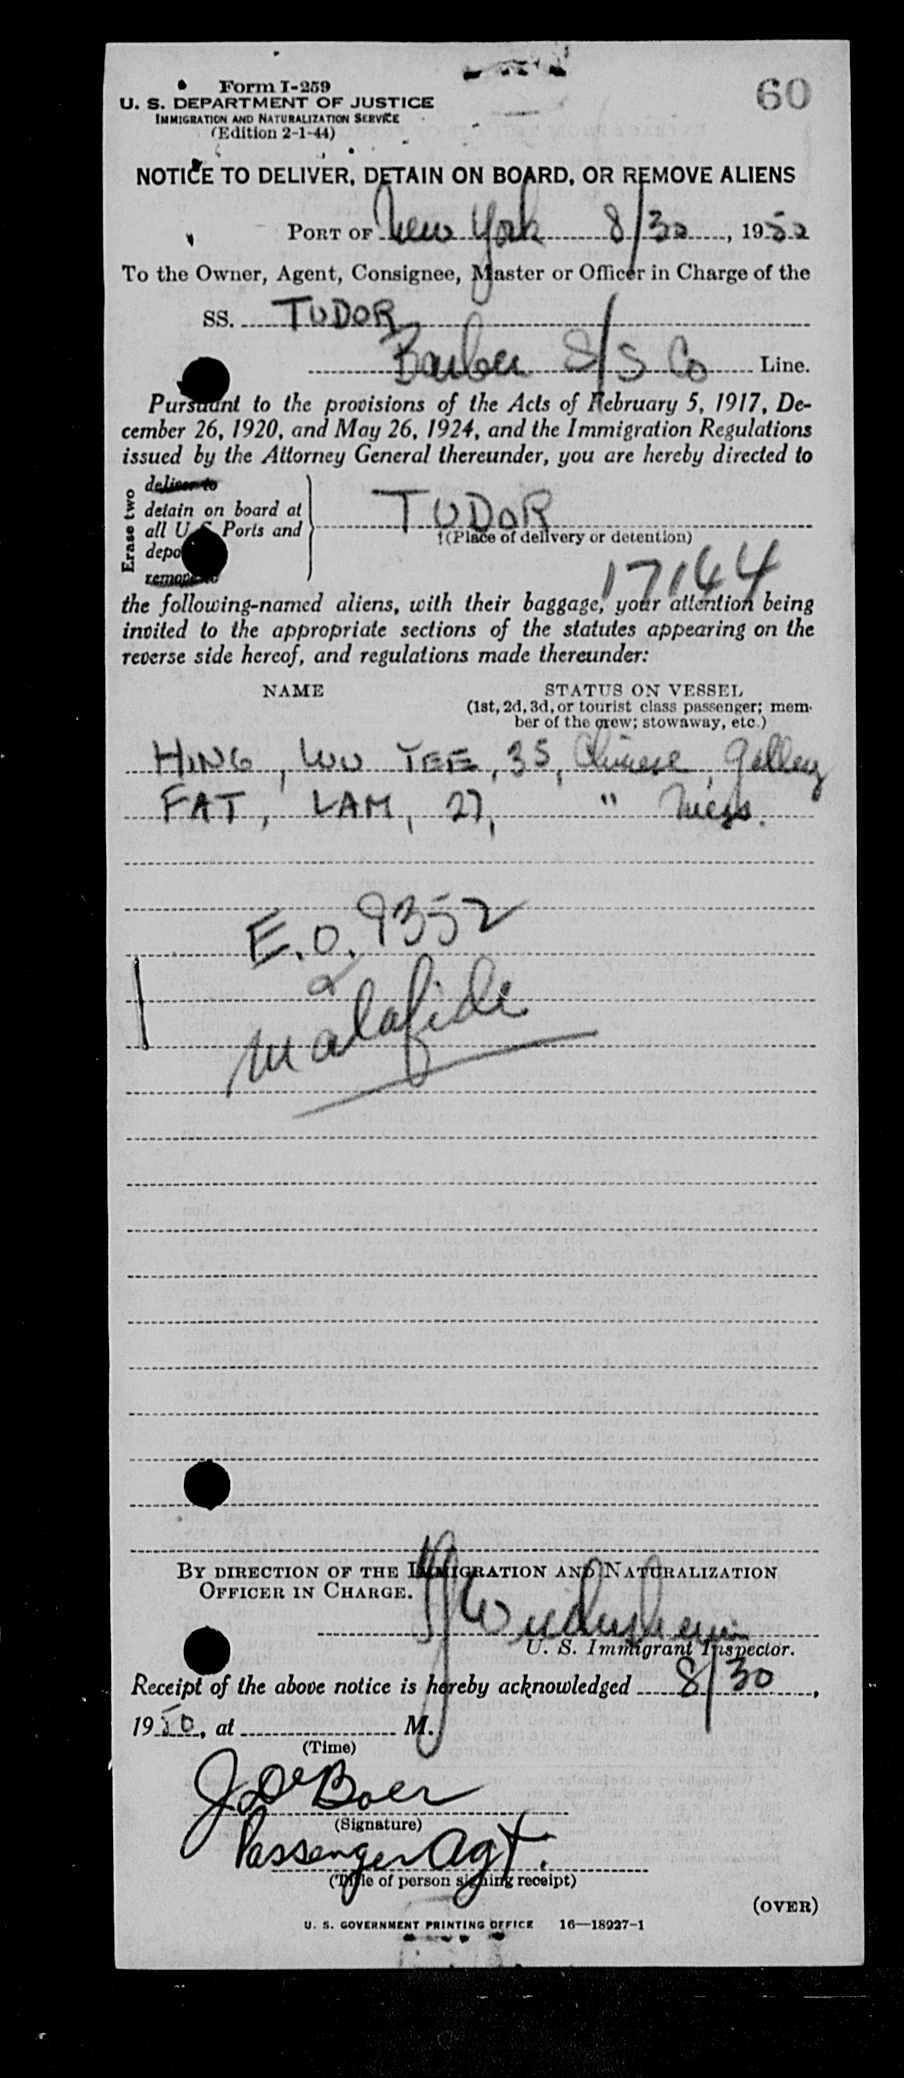 Form I-259
60
U. S. DEPARTMENT OF JUSTICE
IMMIGRATION AND NATURALIZATION SERVICE
(Edition 2-1-44)
NOTICE TO DELIVER, DETAIN ON BOARD, OR REMOVE ALIENS
PORT OF New York 8/30, 1950
To the Owner, Agent, Consignee, Master or Officer in Charge of the
SS. TUDOR
Barber S/S Co Line.
Pursuant to the provisions of the Acts of February 5, 1917, De-
cember 26, 1920, and May 26, 1924, and the Immigration Regulations
issued by the Attorney General thereunder, you are hereby directed to
Erase two
deliver to
detain on board at
all U. S. Ports and
depo
remove to
TUDOR
(Place of delivery or detention)
17164
the following-named aliens, with their baggage, your attention being
invited to the appropriate sections of the statutes appearing on the
reverse side hereof, and regulations made thereunder:
NAME STATUS ON VESSEL
(1st, 2d, 3d, or tourist class passenger; mem-
ber of the crew; stowaway, etc.)
HING, WU YEE, 35, Chinese, Galley
FAT, LAM, 27, " Mess.
E.O. 9352
&
malafide
BY DIRECTION OF THE IMMIGRATION AND NATURALIZATION
OFFICER IN CHARGE.
U. S. Immigrant Inspector.
Receipt of the above notice is hereby acknowledged 8/30,
1950, at M.
(Time)
J. De Boer
(Signature)
Passenger Agt.
(Title of person signing receipt)
(OVER)
U. S. GOVERNMENT PRINTING OFFICE 16—18927-1